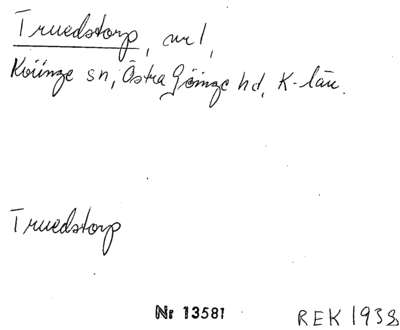 Truedstorp, nr 1,
Kviinge sn, Östra Göinge hd, K-län.
Truedstorp
Nr 13581 REK 1938